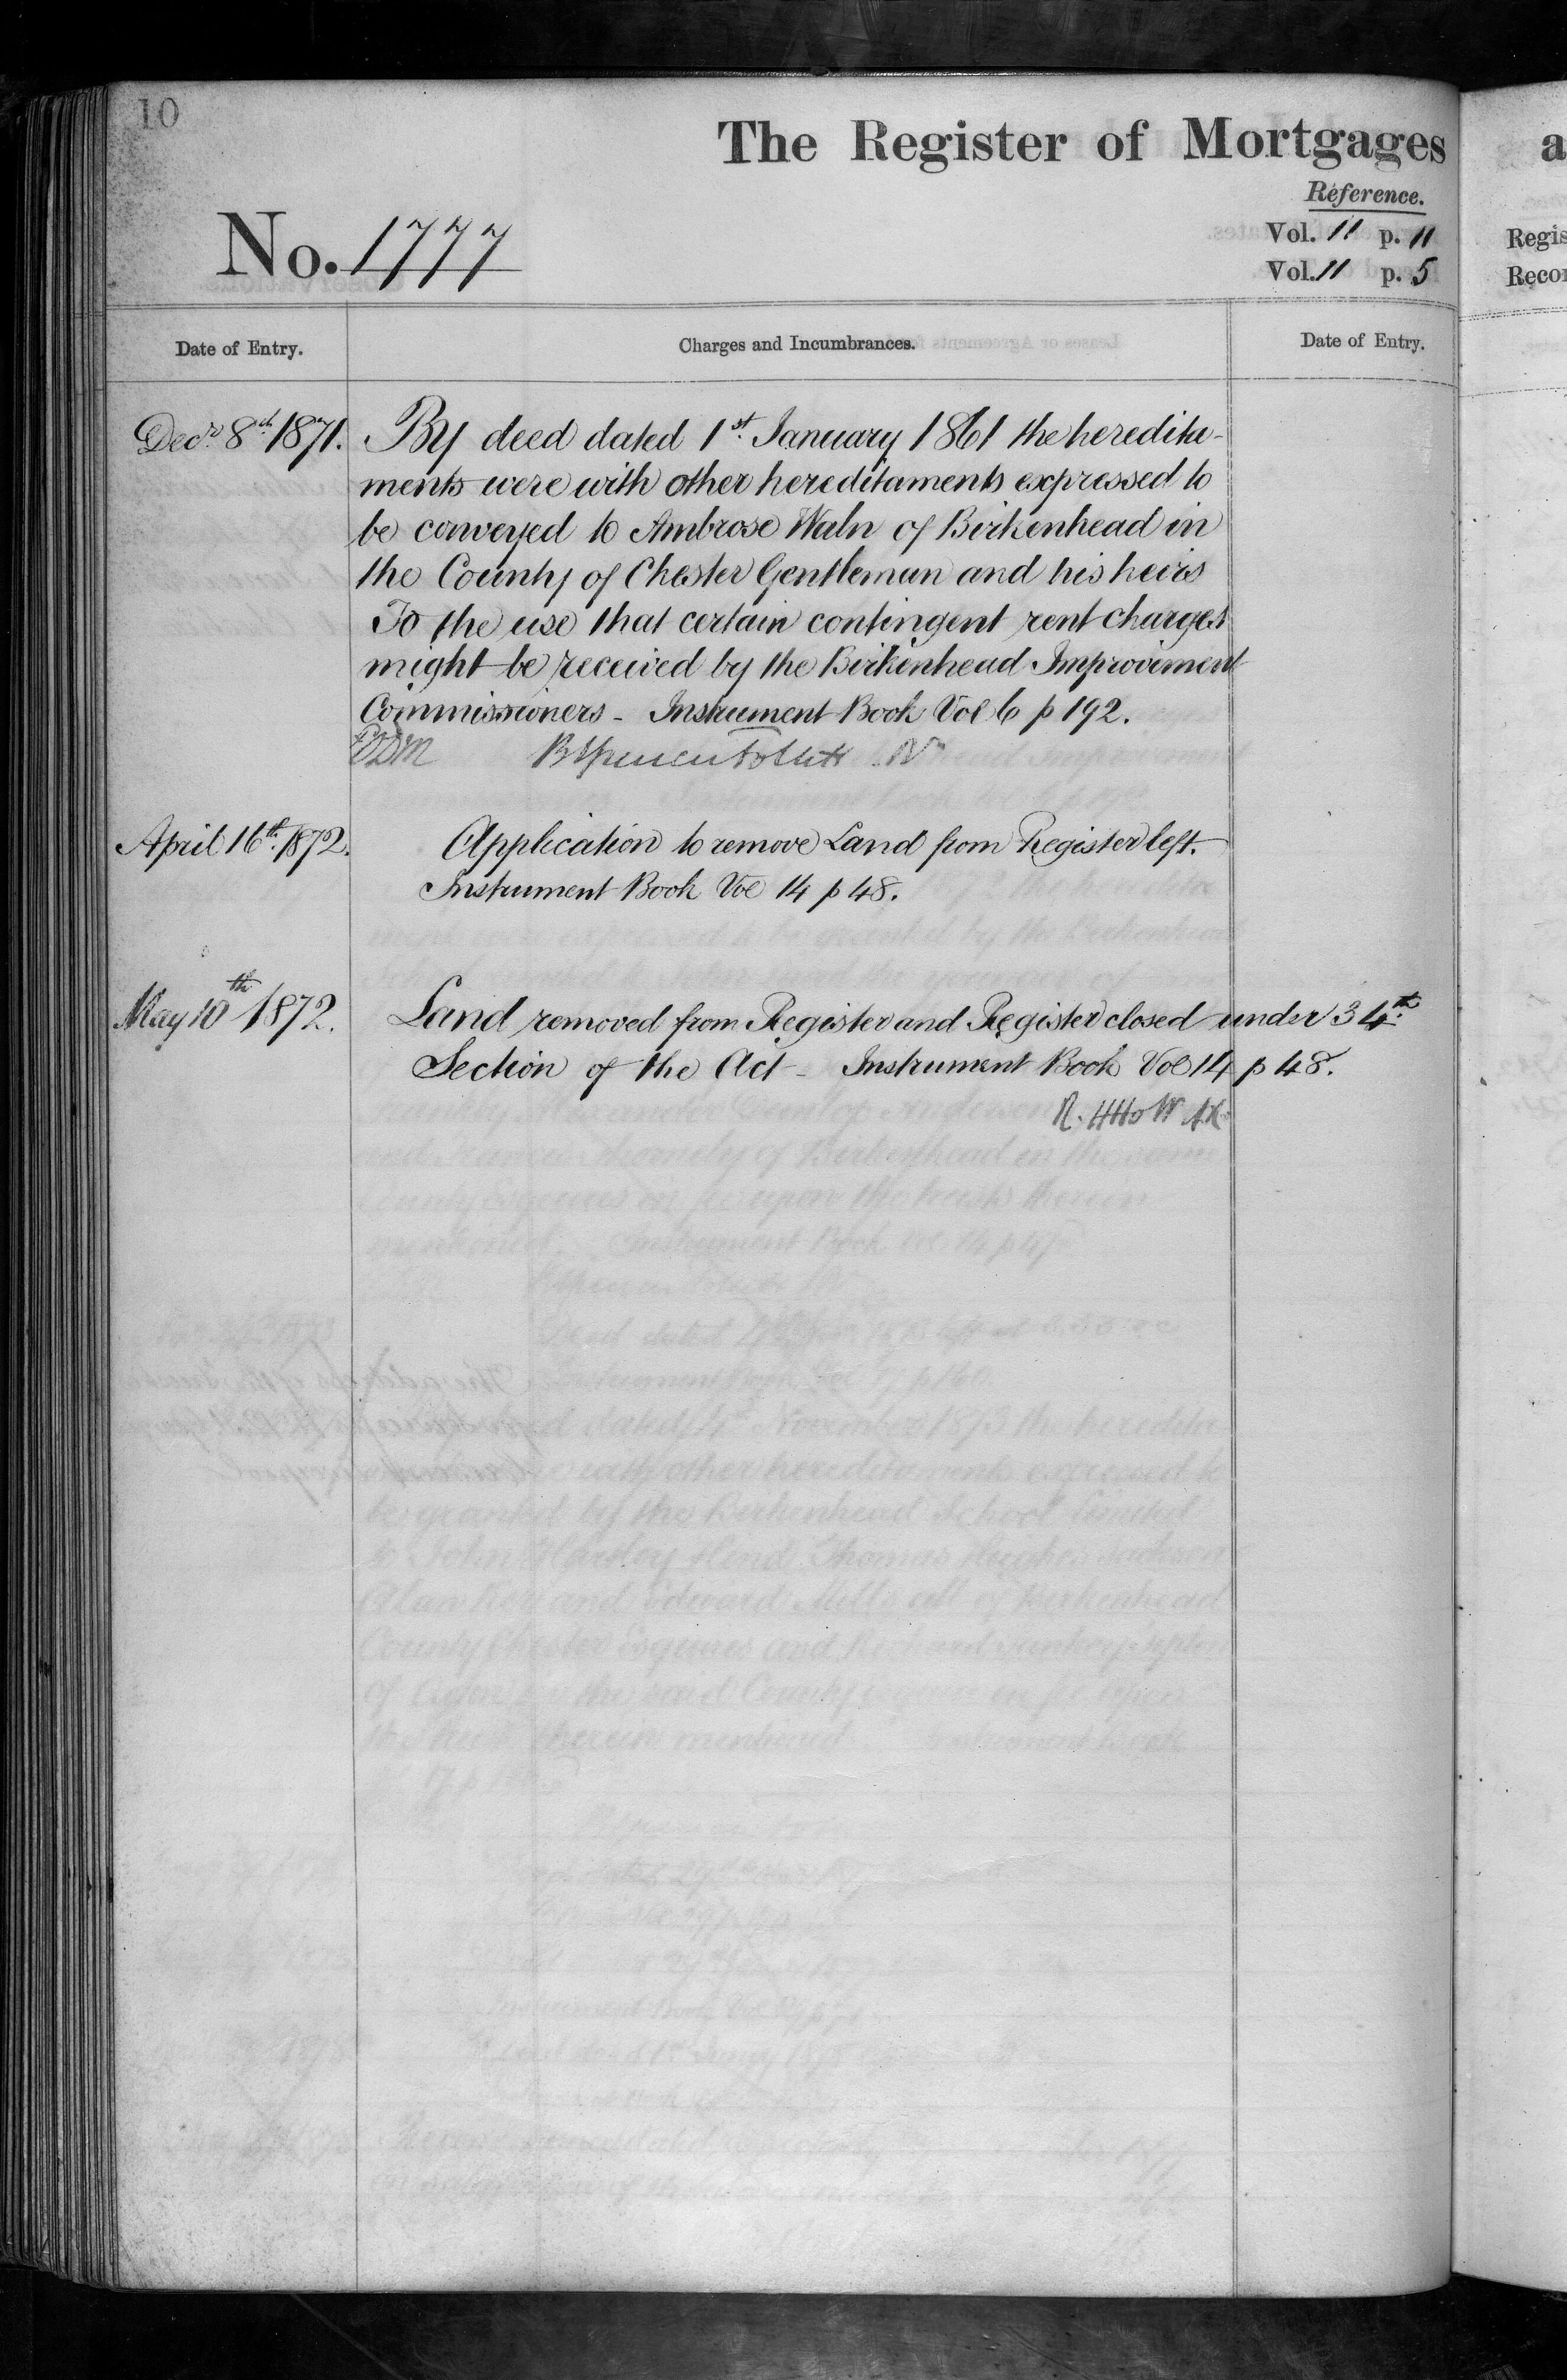 10
The Register of Mortgages
Reference.
No. 1777
Vol. 11 p. 11
Vol. 11 p. 5
Date of Entry.
Charges and Incumbrances.
Date of Entry.
Decr 8th 1871.
By deed dated 1st January 1861 the heredita-
ments were with other hereditaments expressed to
be conveyed to Ambrose Waln of Birkenhead in
the County of Chester Gentleman and his heirs
To the use that certain contingent rent charges
might be received by the Birkenhead Improvement
Commissioners - Instrument Book Vol 6 p 192.
April 16th 1872.
Application to remove Land from Register left.
Instrument Book Vol 14 p 48.
May 10th 1872.
Land removed from Register and Register closed under 34th
Section of the Act - Instrument Book Vol 14 p 48.
a
Regis
Recor